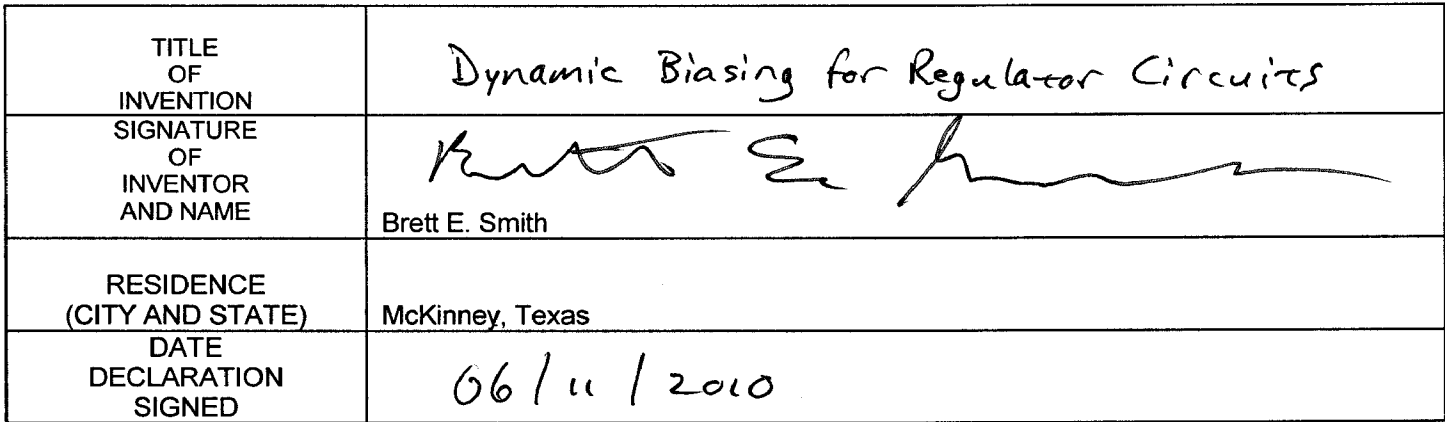 TITLE
OF
INVENTION
Dynamic Biasing for Regulator Circuits
SIGNATURE
OF
INVENTOR
AND NAME
Brett E. Smith
RESIDENCE
(CITY AND STATE)
McKinney, Texas
DATE
DECLARATION
SIGNED
06/11/2010